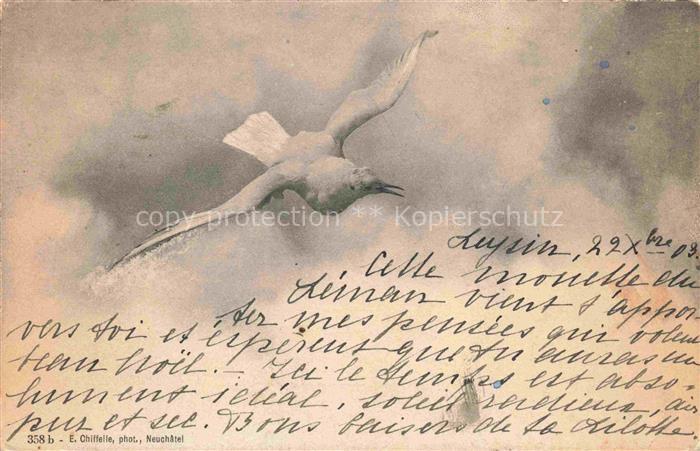 copy protection ** Kopierschutz
Leysin, 22 Xbre 03.
Cette mouette du
Léman vient t'appor-
ter mes pensées qui volent
vers toi et espèrent que tu auras un
beau Noël. – Ici le temps est abso-
lument idéal, soleil radieux, air
pur et sec. Bons baisers de ta Lilotte.
358 b – E. Chiffelle, phot., Neuchâtel